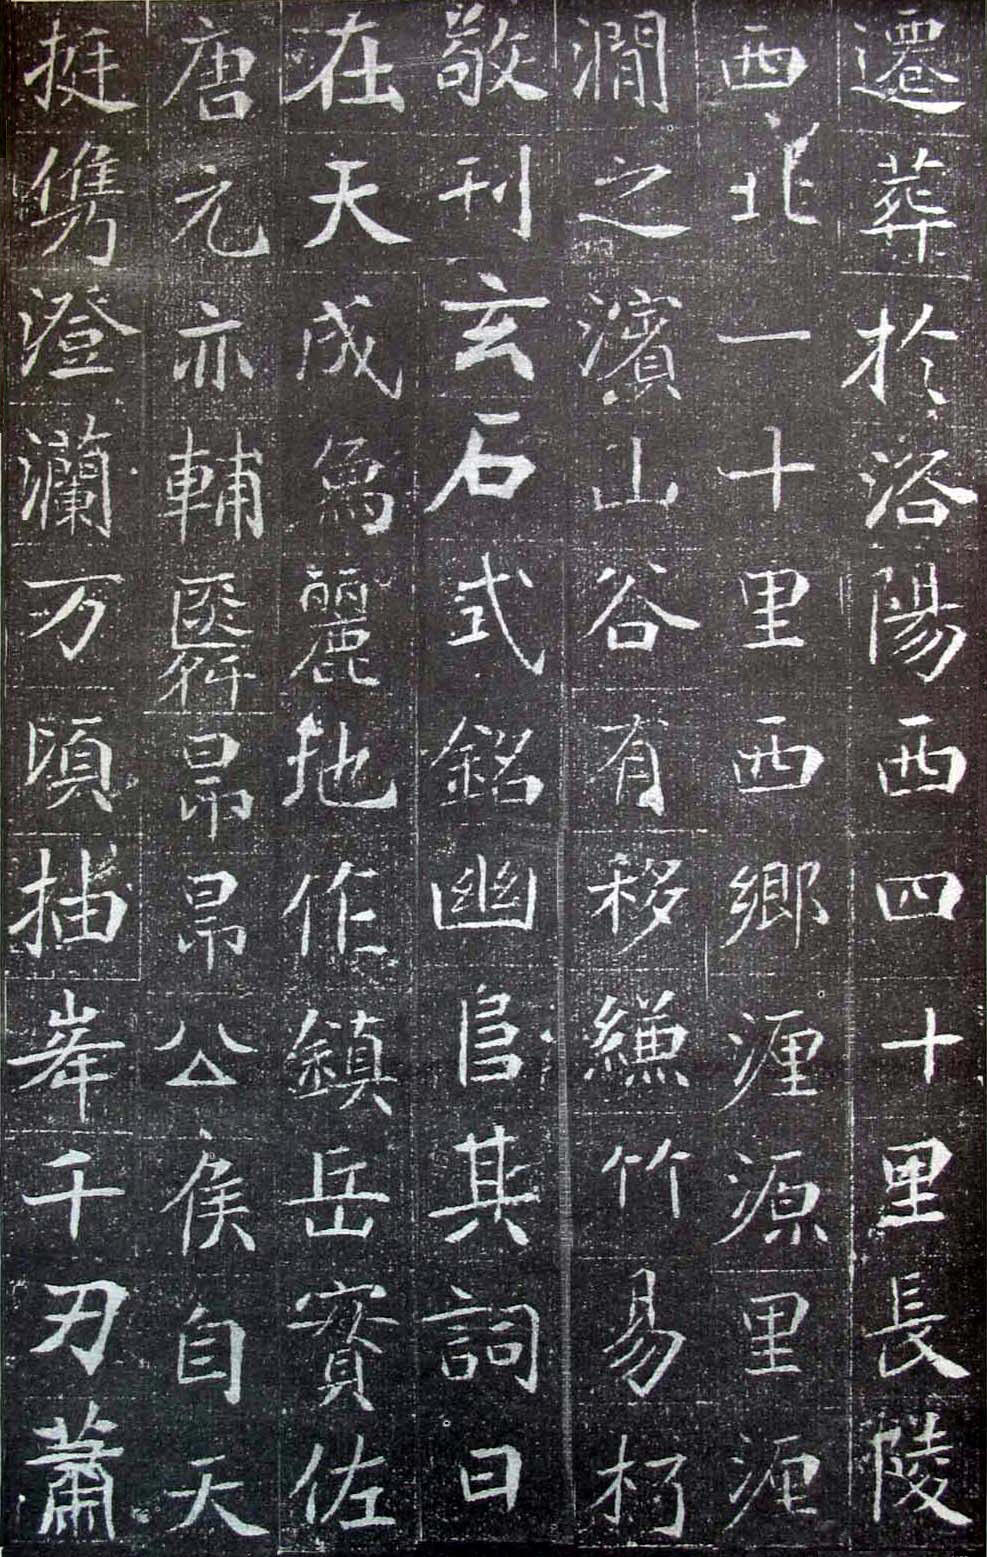 遷葬於洛陽西四十里長陵
西北一十里西鄉瀍源里瀍
澗之濱山谷有移縑竹易朽
敬刊玄石式銘幽𨸏其詞曰
在天成為麗地作鎮岳實佐
唐元亦輔昂昂公侯自天
挺儁澄瀾万頃抽峯千刃蕭